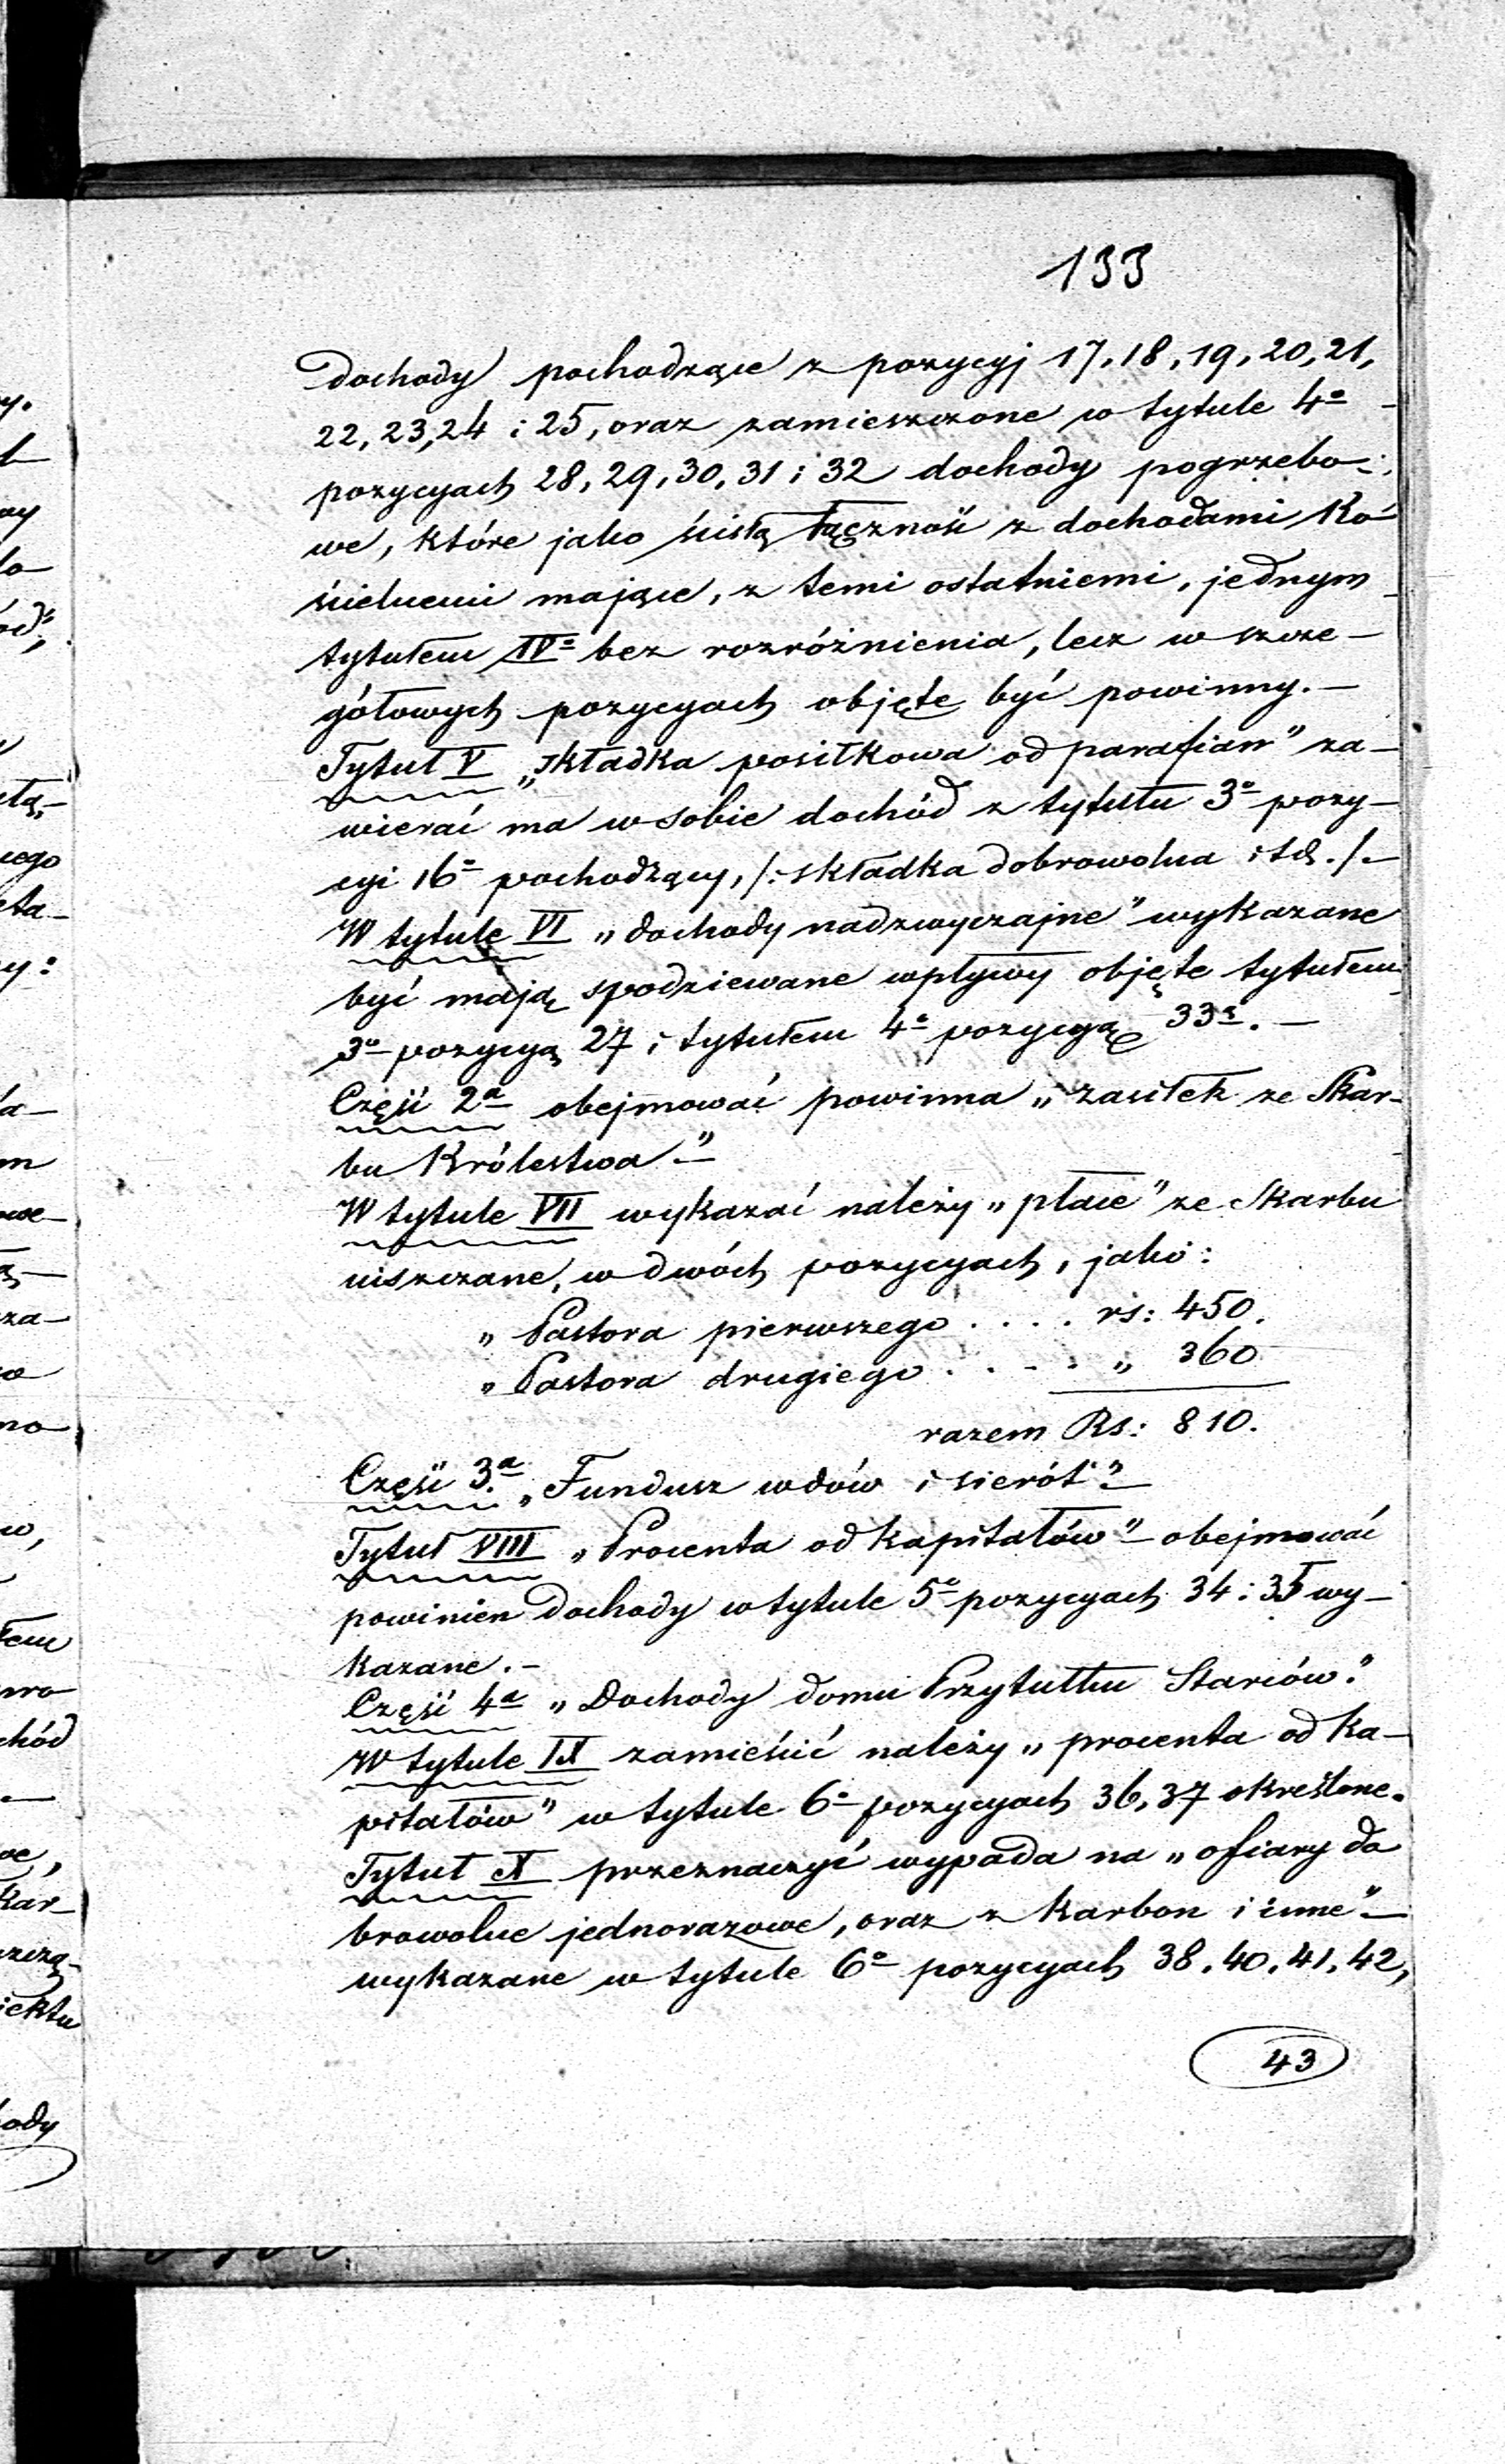 133
Dochody pochodzące z pozycyj 17, 18, 19, 20, 21,
22, 23, 24 i 25, oraz zamieszczone w tytule 4º
pozycyach 28, 29, 30, 31 i 32 dochody pogrzebo-
we, które jako ścisłą łączność z dochodami Ko-
ścielnemi mające, z temi ostatniemi, jednym
tytułem IVº bez rozróżnienia, lecz w szcze-
gółowych pozycyach objęte być powinny.—
Tytuł V „składka posiłkowa od parafian" za-
wierać ma w sobie dochód z tytułu 3º pozy-
cyi 16º pochodzący, /: składka dobrowolna i td. /.—
W tytule VI „dochody nadzwyczajne" wykazane
być mają spodziewane wpływy objęte tytułem
3º pozycyą 27 i tytułem 4º pozycyą 33ª.—
Część 2ª obejmować powinna „zasiłek ze Skar-
bu Królestwa"—
W tytule VII wykazać należy „płace" ze Skarbu
uiszczane, w dwóch pozycyach, jako:
„ Pastora pierwszego . . . . rs: 450.
„ Pastora drugiego . . . . „ 360
razem Rs: 810.
Część 3ª „Fundusz wdów i sierót"—
Tytuł VIII „Procenta od kapitałów"— obejmować
powinien dochody w tytule 5º pozycyach 34 i 35 wy-
kazane.—
Część 4ª „Dochody domu Przytułku Starców."
W tytule IX zamieścić należy „procenta od ka-
pitałów" w tytule 6º pozycyach 36, 37 określone.
Tytuł X przeznaczyć wypada na „ofiary do
browolne jednorazowe, oraz z karbon i inne"—
wykazane w tytule 6º pozycyach 38, 40, 41, 42,
43